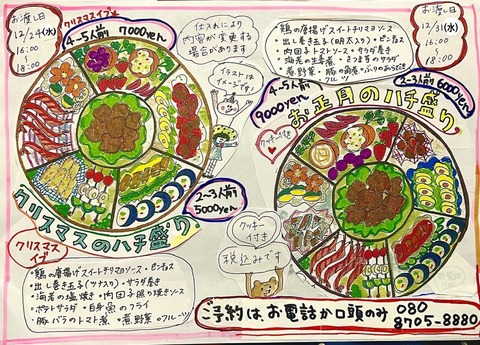 お渡し日
12/24(水)
16:00
〜
18:00
クリスマスイブ
4-5人前 7000yen
仕入れにより
内容が変更する
場合があります
イラストは
イメージです!
2〜3人前
5000yen
クリスマスのハチ盛り
クリスマス
イブ
・鶏の唐揚げスイートチリマヨソース・ピンチョス
・出し巻き玉子(ツナ入り)・サラダ巻き
・海老の塩焼き・肉団子照り焼きソース
・ポテトサラダ・白身魚のフライ
・豚バラのトマト煮・煮野菜・フルーツ
・鶏の唐揚げスイートチリマヨソース
・出し巻き玉子(明太入り)・ピンチョス
・肉団子トマトソース・サラダ巻き
・海老の生春巻・さつま芋のサラダ
・煮野菜・豚の角煮・ぶりのあら付
・フルーツ
お渡し日
12/31(水)
16:00
〜
18:00
4-5人前
9000yen
2-3人前 6000yen
お正月のハチ盛り
クッキー付き
クッキー
付き
税込みです
ご予約は、お電話か口頭のみ
080
8705-8880